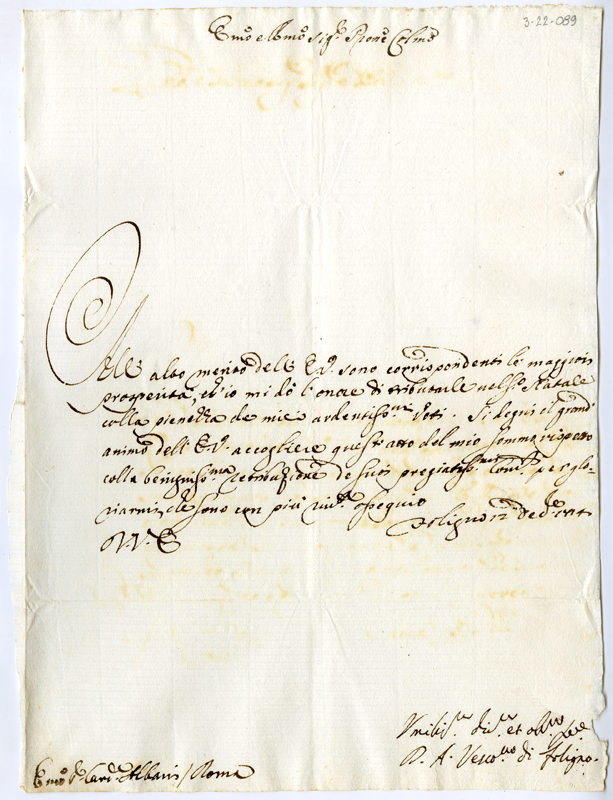 3-22-089
Emo e Rmo Sigr. Prone Colmo
All' alto merito dell' E.V. sono corrispondenti le maggiori
prosperità, ch'io mi dò l'onore di tributarle nel Sto Natale
colla pienezza de miei ardentissmi Voti. Si degni il grand'
animo dell' E.V. accogliere quest' atto del mio sommo rispetto
colla benignissma retribuzione de suoi pregiatissmi Comdi per glo-
riarmi, che sono con più umile ossequio
Foligno 12 Xbre
D.V.E.
Umiliss. div. et obl. Sre
D. A. Vescovo di Foligno.
Emo Sr. Card. Albani / Roma